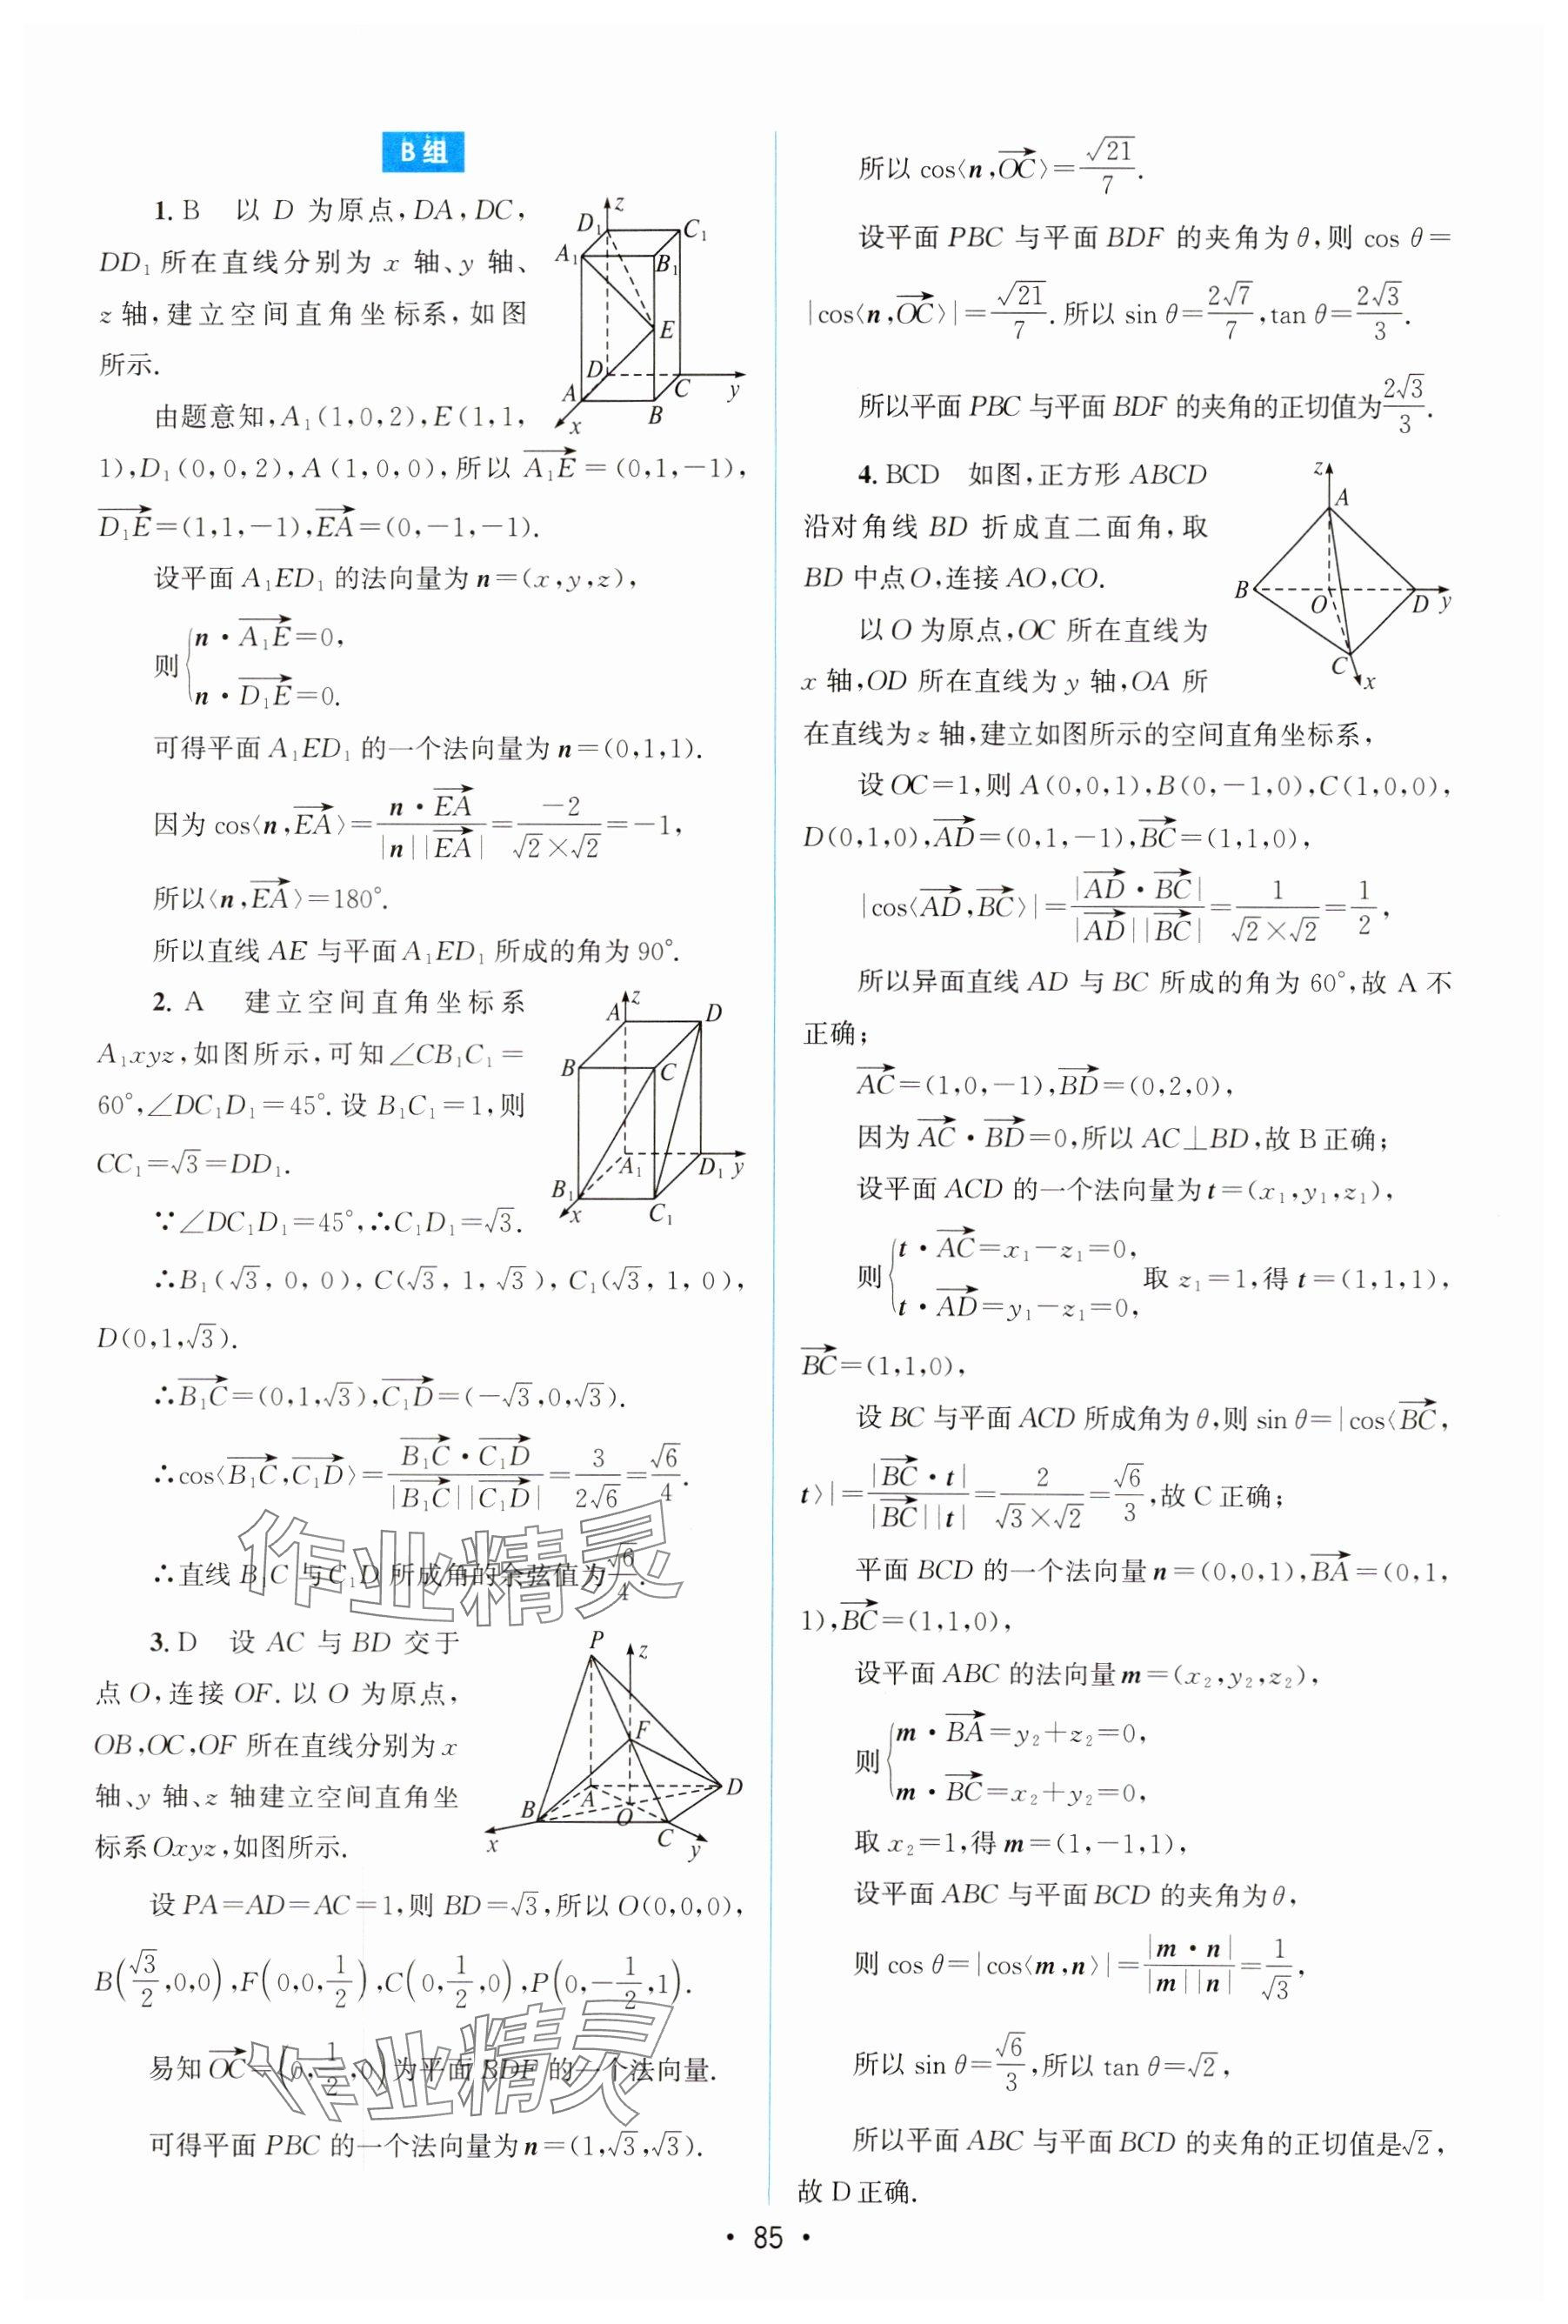 B组
1. B 以 D 为原点,DA,DC,
DD₁所在直线分别为 x 轴、y 轴、
z 轴,建立空间直角坐标系,如图
所示.
由题意知,A₁(1,0,2),E(1,1,
1),D₁(0,0,2),A(1,0,0),所以 \overrightarrow{A₁E}=(0,1,-1),
\overrightarrow{D₁E}=(1,1,-1),\overrightarrow{EA}=(0,-1,-1).
设平面 A₁ED₁ 的法向量为 n=(x,y,z),
则{n·\overrightarrow{A₁E}=0,
n·\overrightarrow{D₁E}=0.
可得平面 A₁ED₁ 的一个法向量为 n=(0,1,1).
因为 cos⟨n,\overrightarrow{EA}⟩=\frac{n·\overrightarrow{EA}}{|n||\overrightarrow{EA}|}=\frac{-2}{√2×√2}=-1,
所以⟨n,\overrightarrow{EA}⟩=180°.
所以直线 AE 与平面 A₁ED₁ 所成的角为 90°.
2. A 建立空间直角坐标系
A₁xyz,如图所示,可知∠CB₁C₁=
60°,∠DC₁D₁=45°.设 B₁C₁=1,则
CC₁=√3=DD₁.
∵∠DC₁D₁=45°,∴C₁D₁=√3.
∴B₁(√3, 0, 0), C(√3, 1, √3), C₁(√3, 1, 0),
D(0,1,√3).
∴\overrightarrow{B₁C}=(0,1,√3),\overrightarrow{C₁D}=(-√3,0,√3).
∴cos⟨\overrightarrow{B₁C},\overrightarrow{C₁D}⟩=\frac{\overrightarrow{B₁C}·\overrightarrow{C₁D}}{|\overrightarrow{B₁C}||\overrightarrow{C₁D}|}=\frac{3}{2√6}=\frac{√6}{4}.
∴直线 B₁C 与 C₁D 所成角的余弦值为\frac{√6}{4}.
3. D 设 AC 与 BD 交于
点 O,连接 OF. 以 O 为原点,
OB,OC,OF 所在直线分别为 x
轴、y 轴、z 轴建立空间直角坐
标系 Oxyz,如图所示.
设 PA=AD=AC=1,则 BD=√3,所以 O(0,0,0),
B(\frac{√3}{2},0,0),F(0,0,\frac{1}{2}),C(0,\frac{1}{2},0),P(0,-\frac{1}{2},1).
易知 \overrightarrow{OC}=(0,\frac{1}{2},0)为平面 BDF 的一个法向量.
可得平面 PBC 的一个法向量为 n=(1,√3,√3).
所以 cos⟨n,\overrightarrow{OC}⟩=\frac{√21}{7}.
设平面 PBC 与平面 BDF 的夹角为 θ,则 cos θ=
|cos⟨n,\overrightarrow{OC}⟩|=\frac{√21}{7}.所以 sin θ=\frac{2√7}{7},tan θ=\frac{2√3}{3}.
所以平面 PBC 与平面 BDF 的夹角的正切值为\frac{2√3}{3}.
4. BCD 如图,正方形 ABCD
沿对角线 BD 折成直二面角,取
BD 中点 O,连接 AO,CO.
以 O 为原点,OC 所在直线为
x 轴,OD 所在直线为 y 轴,OA 所
在直线为 z 轴,建立如图所示的空间直角坐标系,
设 OC=1,则 A(0,0,1),B(0,-1,0),C(1,0,0),
D(0,1,0),\overrightarrow{AD}=(0,1,-1),\overrightarrow{BC}=(1,1,0),
|cos⟨\overrightarrow{AD},\overrightarrow{BC}⟩|=\frac{|\overrightarrow{AD}·\overrightarrow{BC}|}{|\overrightarrow{AD}||\overrightarrow{BC}|}=\frac{1}{√2×√2}=\frac{1}{2},
所以异面直线 AD 与 BC 所成的角为 60°,故 A 不
正确;
\overrightarrow{AC}=(1,0,-1),\overrightarrow{BD}=(0,2,0),
因为\overrightarrow{AC}·\overrightarrow{BD}=0,所以 AC⊥BD,故 B 正确;
设平面 ACD 的一个法向量为 t=(x₁,y₁,z₁),
则{t·\overrightarrow{AC}=x₁-z₁=0,
t·\overrightarrow{AD}=y₁-z₁=0, 取 z₁=1,得 t=(1,1,1),
\overrightarrow{BC}=(1,1,0),
设 BC 与平面 ACD 所成角为 θ,则 sin θ=|cos⟨\overrightarrow{BC},
t⟩|=\frac{|\overrightarrow{BC}·t|}{|\overrightarrow{BC}||t|}=\frac{2}{√3×√2}=\frac{√6}{3},故 C 正确;
平面 BCD 的一个法向量 n=(0,0,1),\overrightarrow{BA}=(0,1,
1),\overrightarrow{BC}=(1,1,0),
设平面 ABC 的法向量 m=(x₂,y₂,z₂),
则{m·\overrightarrow{BA}=y₂+z₂=0,
m·\overrightarrow{BC}=x₂+y₂=0,
取 x₂=1,得 m=(1,-1,1),
设平面 ABC 与平面 BCD 的夹角为 θ,
则 cos θ=|cos⟨m,n⟩|=\frac{|m·n|}{|m||n|}=\frac{1}{√3},
所以 sin θ=\frac{√6}{3},所以 tan θ=√2,
所以平面 ABC 与平面 BCD 的夹角的正切值是√2,
故 D 正确.
· 85 ·
z
D₁
C₁
A₁
B₁
E
D
A
B
C
x
y
z
A
D
B
C
A₁
D₁
y
B₁
x
C₁
P
z
F
A
D
B
O
C
x
y
z
A
B
O
D
y
C
x
作业精灵
作业精灵